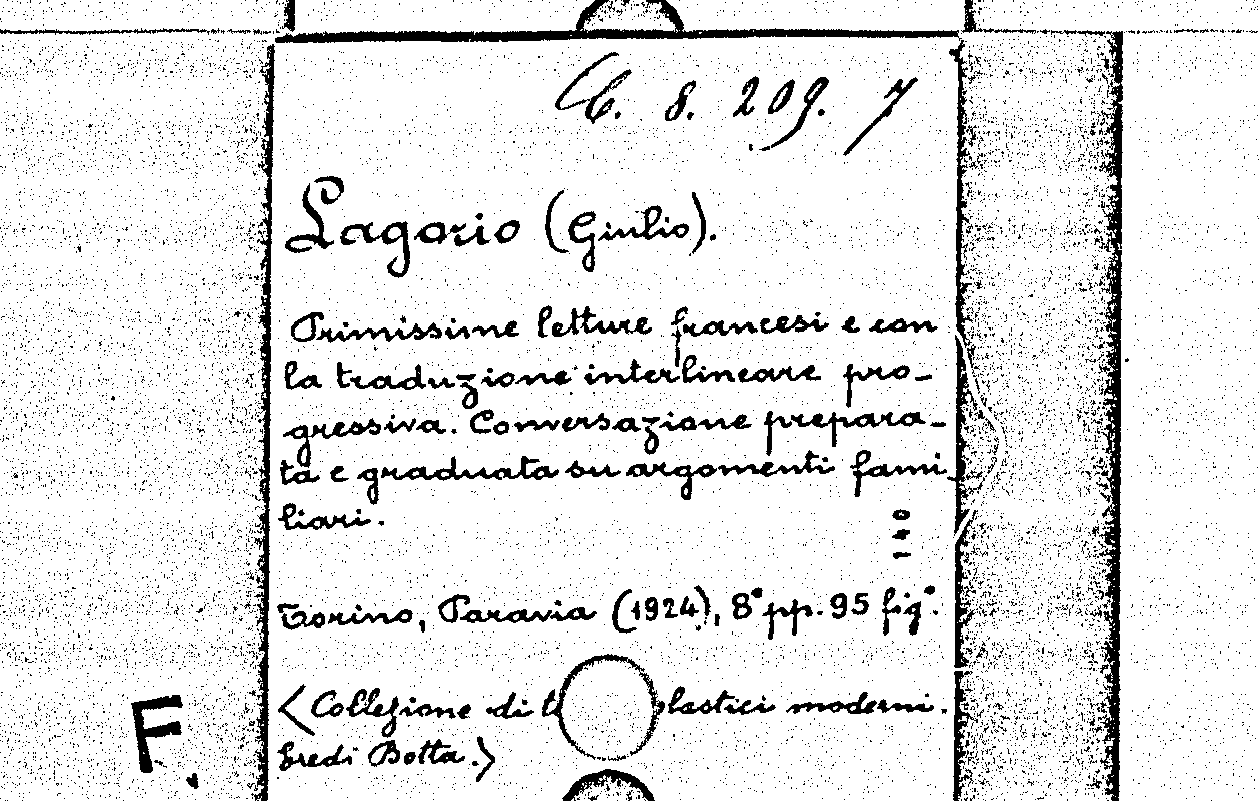 C. 8. 209. 7
Lagorio (Giulio).
Primissime letture francesi e con
la traduzione interlineare pro-
gressiva. Conversazione prepara-
ta e graduata su argomenti fami-
liari.
Torino, Paravia (1924), 8° pp. 95 fig°.
<Collezione di moderni.
Eredi Botta.>
F.